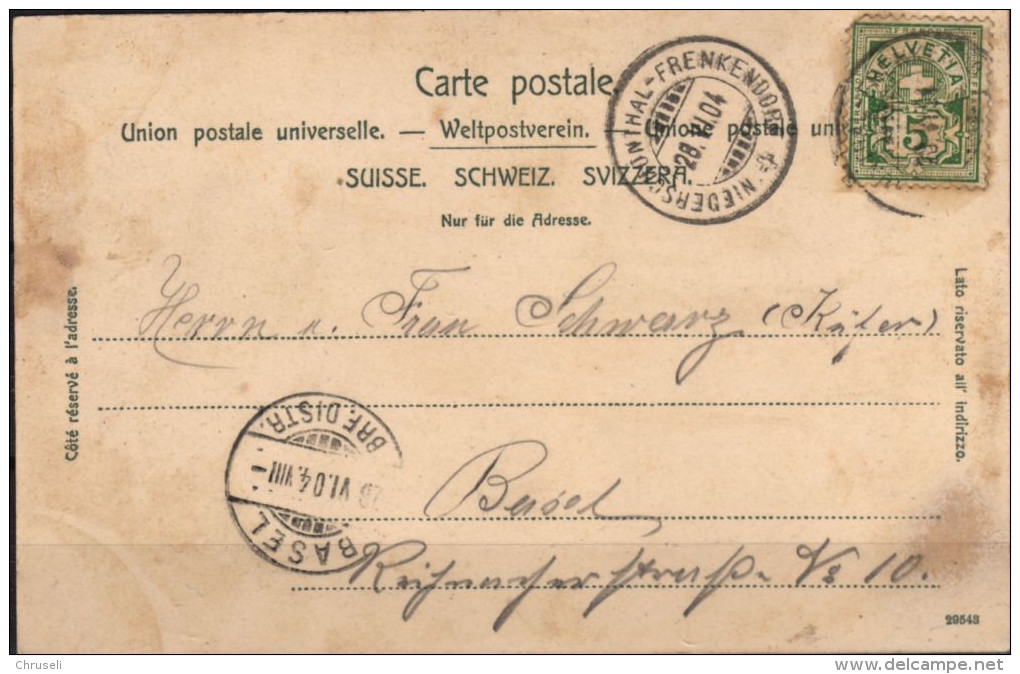 Carte postale.
Union postale universelle. — Weltpostverein. — Unione postale uni
SUISSE. SCHWEIZ. SVIZZERA.
Nur für die Adresse.
NIEDERSCHÖNTHAL-FRENKENDORF
28.VI.04
HELVETIA
5
Côté réservé à l'adresse.
Lato riservato all' indirizzo.
Herrn u. Frau Schwarz (Küfer)
BRF. DISTR.
VI.04.VIII
BASEL
Basel
straße No 10.
29543
Chruseli
www.delcampe.net